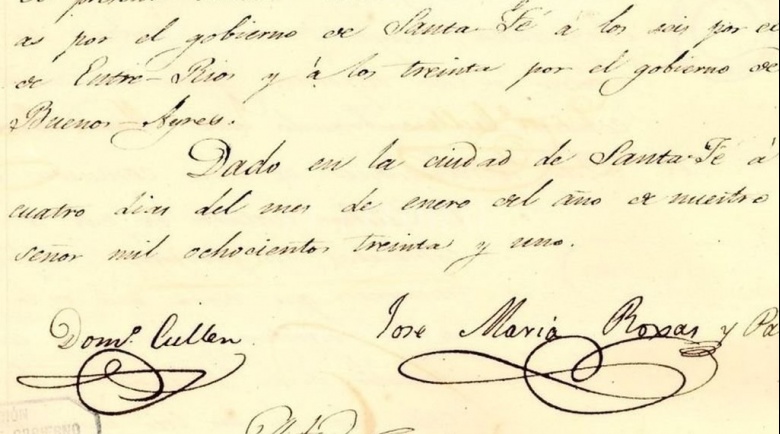 as por el gobierno de Santa-Fé á los seis por el
de Entre-Rios y á los treinta por el gobierno de
Buenos-Ayres.
Dado en la ciudad de Santa-Fé á
cuatro dias del mes de enero del año de nuestro
señor mil ochocientos treinta y uno.
Domº. Cullen
Jose Maria Roxas y Pa